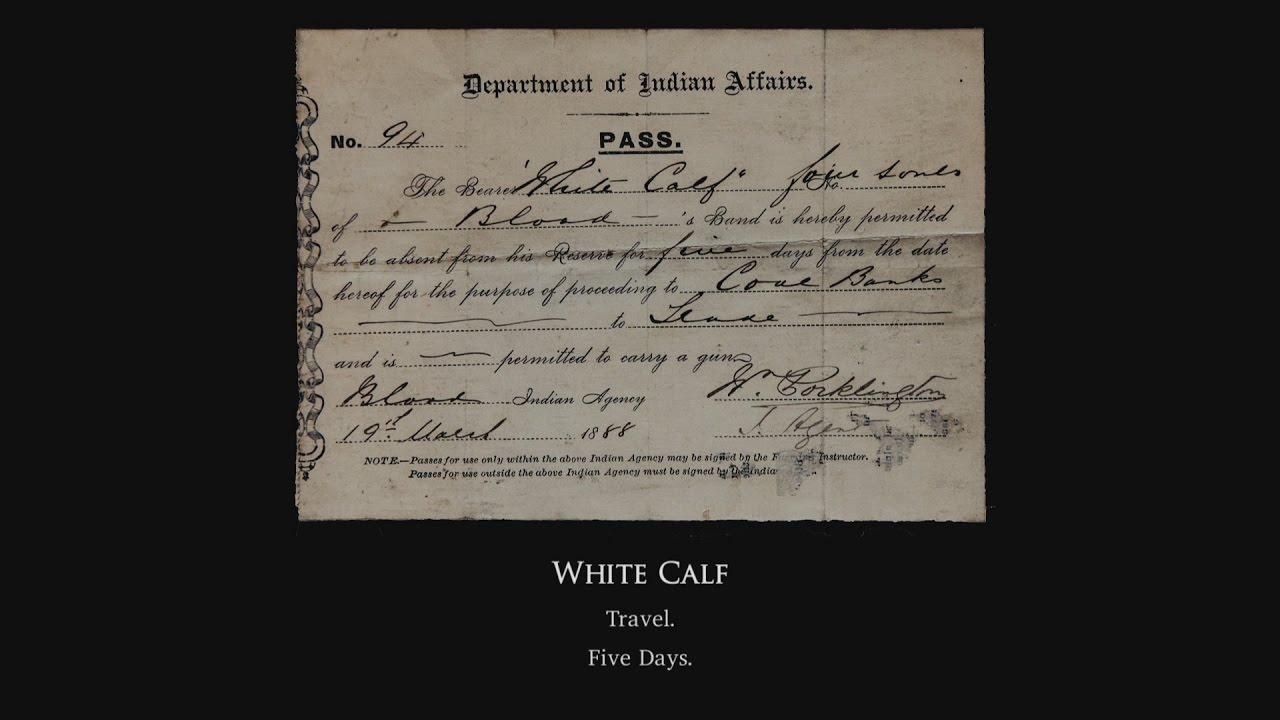 Department of Indian Affairs.
No. 94
PASS.
The Bearer "White Calf" four sones No.
of — Blood — 's Band is hereby permitted
to be absent from his Reserve for five days from the date
hereof for the purpose of proceeding to Coal Banks
to Trade
and is — permitted to carry a gun
Blood Indian Agency Wm. Pocklington
19th March 1888 I. Agent
NOTE.—Passes for use only within the above Indian Agency may be signed by the Instructor.
Passes for use outside the above Indian Agency must be signed by the
WHITE CALF
Travel.
Five Days.